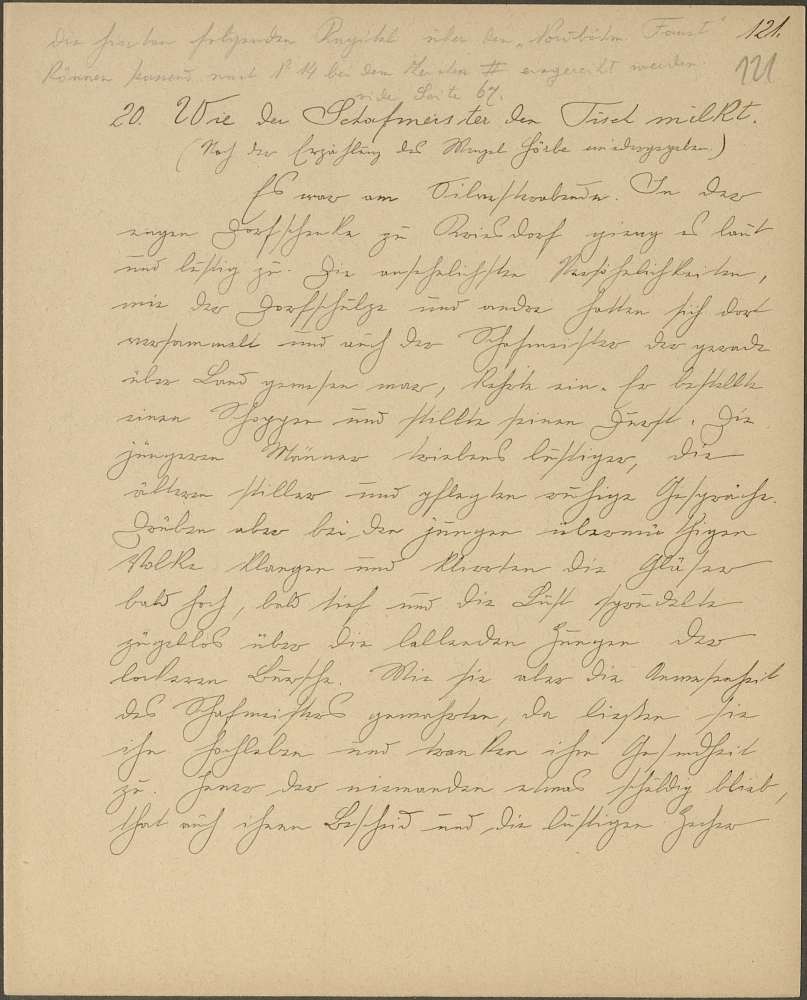 121.
Die hier folgenden Kapitel über den "Nordböhm. Faust"
können passend nach No 14 bei dem Zeichen # eingereiht werden.
vide Seite 67.
121
20. Wie der Schafmeister den Tisch milkt.
(Nach der Erzählung des Wenzel Hörbe wiedergegeben.)
Es war am Silvesterabende. In der
engen Dorfschenke zu Kriesdorf gieng es laut
und lustig zu. Die ansehnlichsten Persönlichkeiten,
wie der Dorfschulze und andre hatten sich dort
versammelt und auch der Schafmeister der gerade
über Land gewesen war, kehrte ein. Er bestellte
einen Schoppen und stillte seinen Durst. Die
jüngeren Männer triebens lustiger, die
älteren stiller und pflegten ruhige Gespräche.
Drüben aber bei den jungen übermüthigen
Volke klangen und klirrten die Gläser
bald hoch, bald tief und die Lust sprudelte
zügellos über die lallenden Zungen der
lockeren Bursche. Wie sie aber die Anwesenheit
des Schafmeisters gewahrten, da ließen sie
ihn hochleben und tranken ihm Gesundheit
zu. Jener der niemanden etwas schuldig blieb,
that auch ihnen Bescheid und die lustigen Zecher